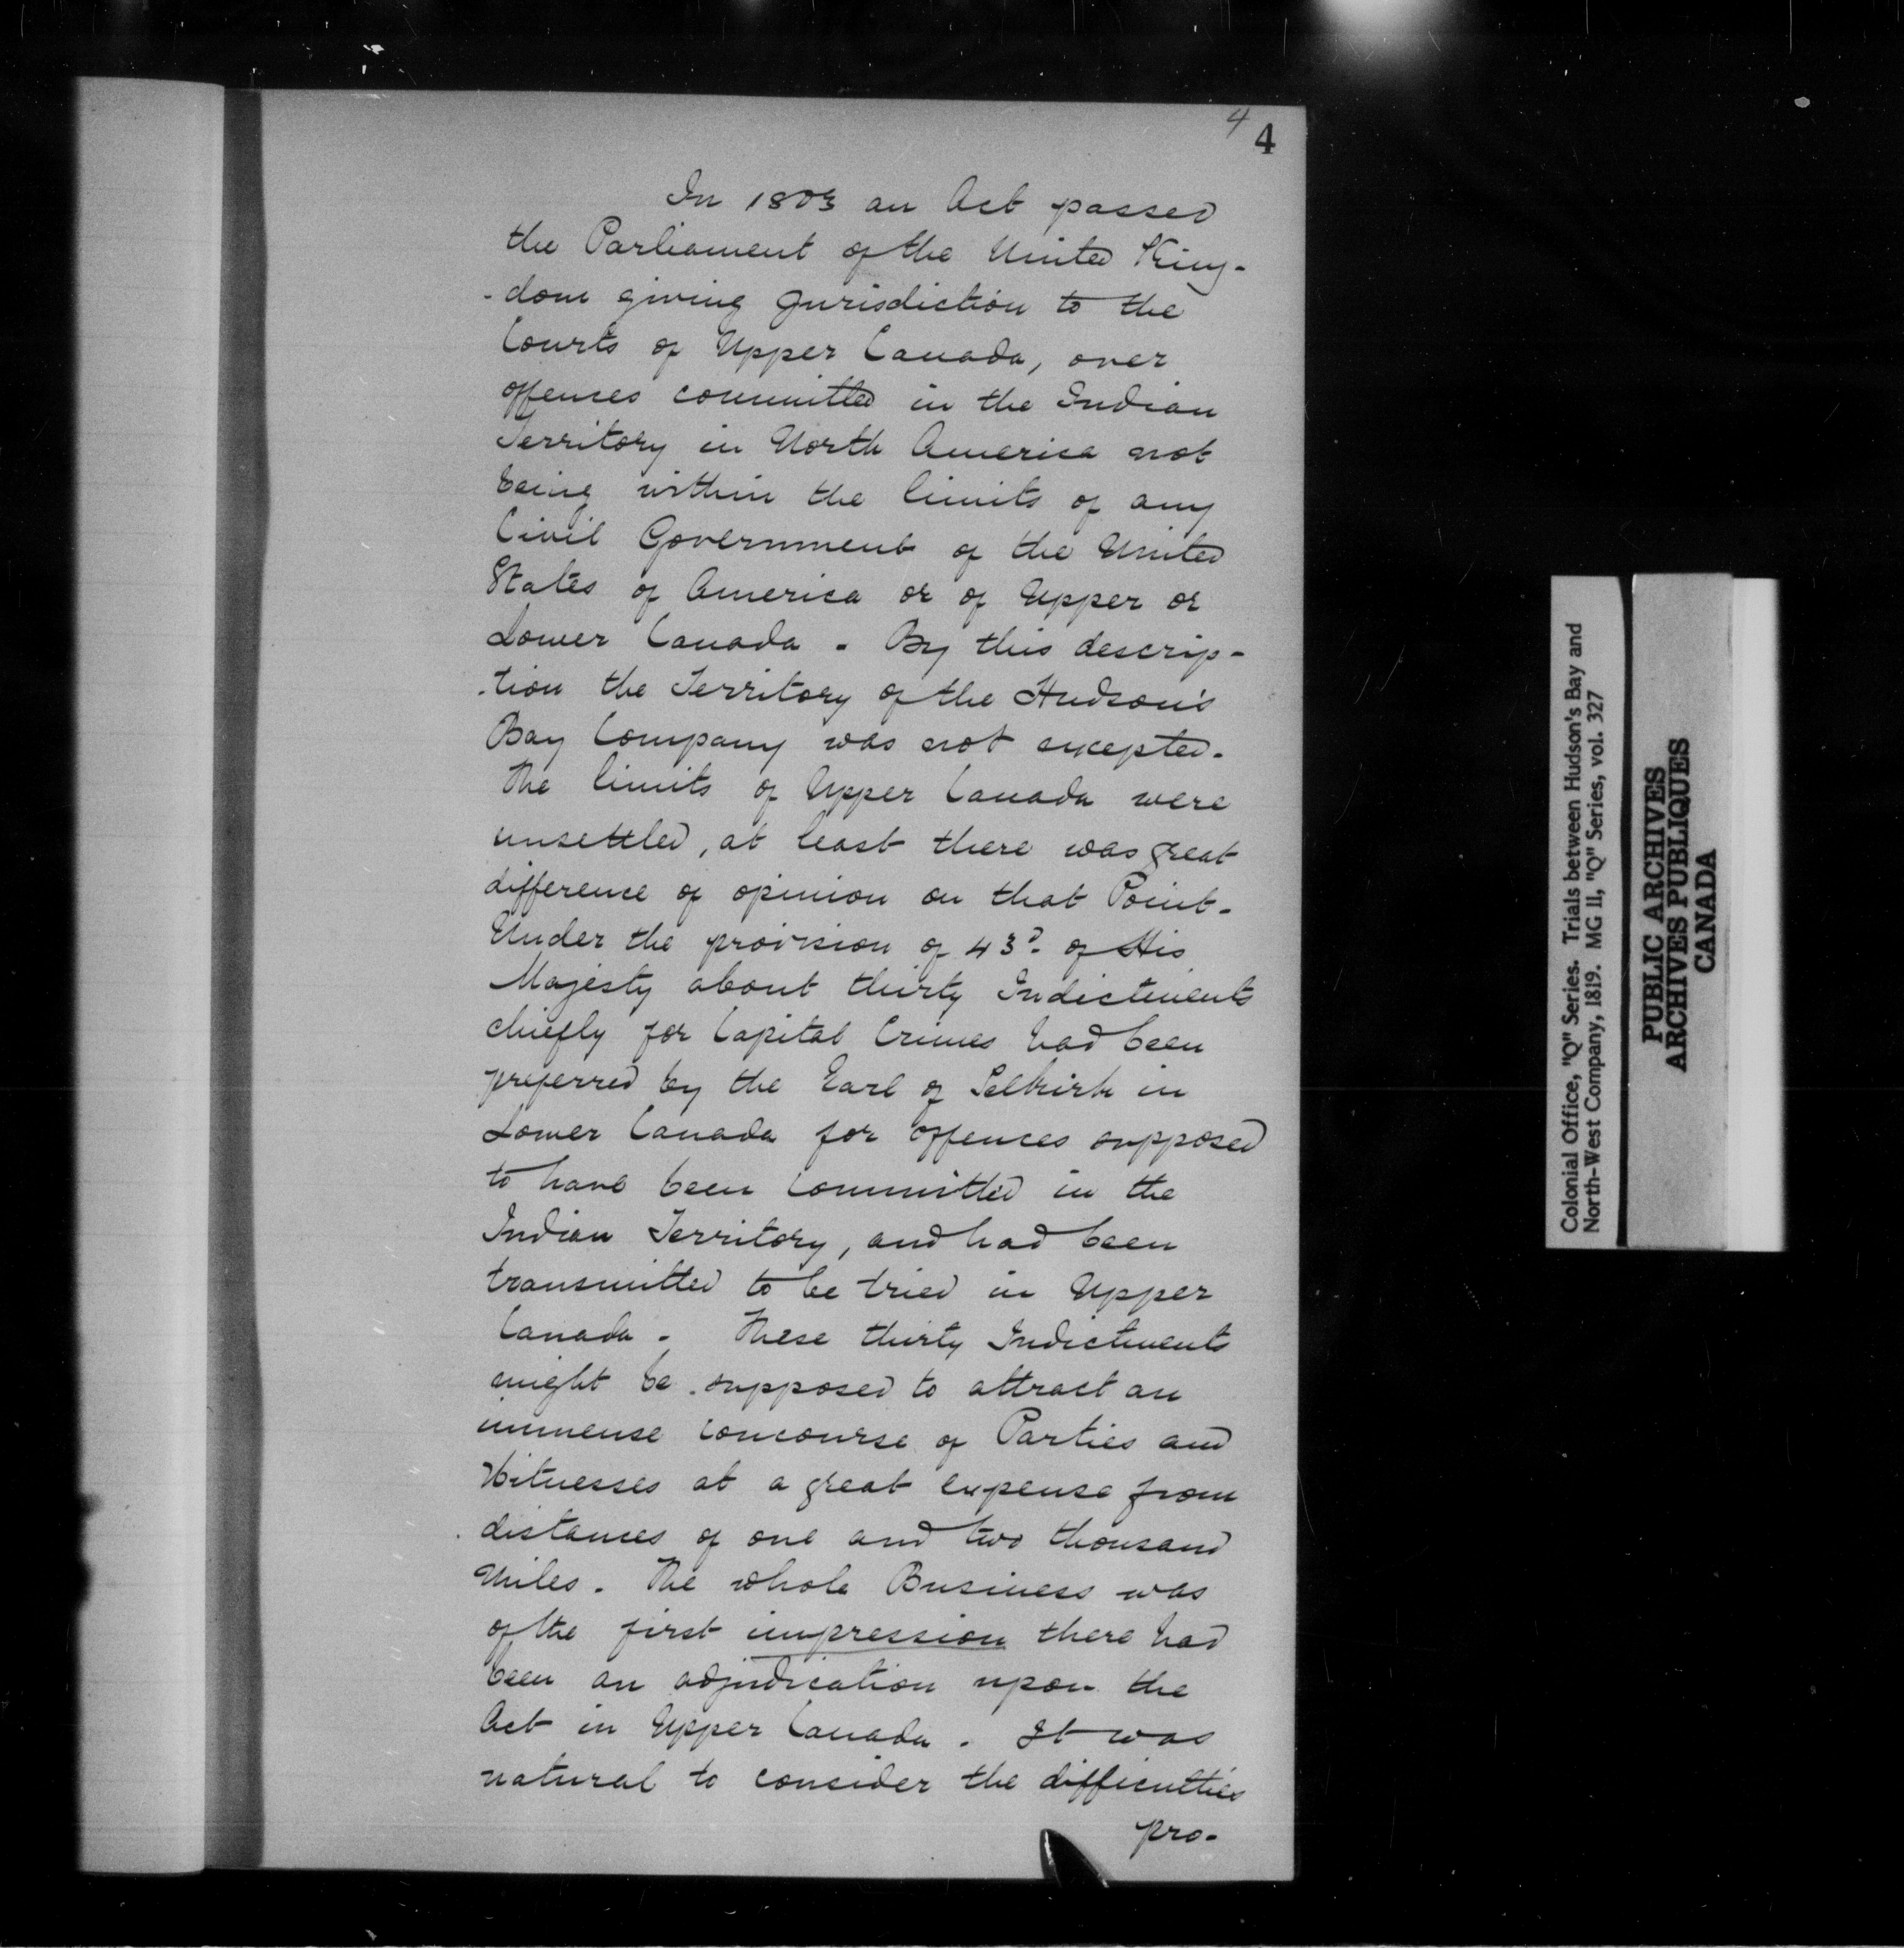 4
4
In 1803 an Act passed
the Parliament of the United King-
-dom giving Jurisdiction to the
Courts of Upper Canada, over
offences committed in the Indian
Territory in North America not
being within the limits of any
Civil Government of the United
States of America or of Upper or
Lower Canada - By this descrip-
-tion the Territory of the Hudson's
Bay Company was not excepted.
The limits of Upper Canada were
unsettled, at least there was great
difference of opinion on that Point.
Under the provision of 43d. of His
Majesty about thirty Indictments
chiefly for Capital Crimes had been
preferred by the Earl of Selkirk in
Lower Canada for offences supposed
to have been committed in the
Indian Territory, and had been
transmitted to be tried in Upper
Canada - These thirty Indictments
might be supposed to attract an
immense concourse of Parties and
Witnesses at a great expense from
distances of one and two thousand
Miles. The whole Business was
of the first impression there had
been an adjudication upon the
Act in Upper Canada. It was
natural to consider the difficulties
pro-
Colonial Office, "Q" Series. Trials between Hudson's Bay and
North-West Company, 1819. MG 11, "Q" Series, vol. 327
PUBLIC ARCHIVES
ARCHIVES PUBLIQUES
CANADA